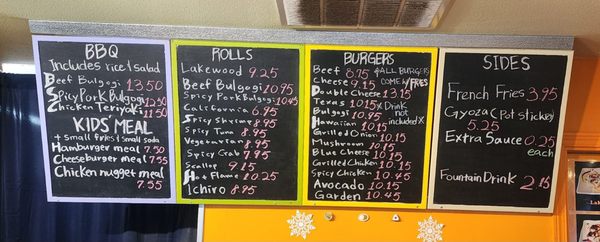 BBQ
Includes rice & salad
Beef Bulgogi 13.50
Spicy Pork Bulgogi 12.50
Chicken Teriyaki 11.50
KIDS' MEAL
+ small fries + small soda
Hamburger meal 7.50
Cheeseburger meal 7.55
Chicken nugget meal
7.55
ROLLS
Lakewood 9.25
Beef Bulgogi 10.95
Spicy Pork Bulgogi 10.45
California 6.95
Spicy Shrimp 8.95
Spicy Tuna 8.95
Vegetarian 8.95
Spicy Crab 7.95
Scallop 9.15
Hot Flame 10.25
Ichiro 8.95
BURGERS
Beef 8.75 *ALL BURGERS
Cheese 9.15 COME W/FRIES
Double Cheese 13.15
Texas 10.15 X Drink
Bulgogi 10.95 not
Hawaiian 10.15 included X
Grilled Onion 10.15
Mushroom 10.15
Blue Cheese 10.15
Grilled Chicken 10.15
Spicy Chicken 10.45
Avocado 10.15
Garden 10.45
SIDES
French Fries 3.95
Gyoza (Pot sticker)
5.25
Extra Sauce 0.25
each
Fountain Drink 2.15